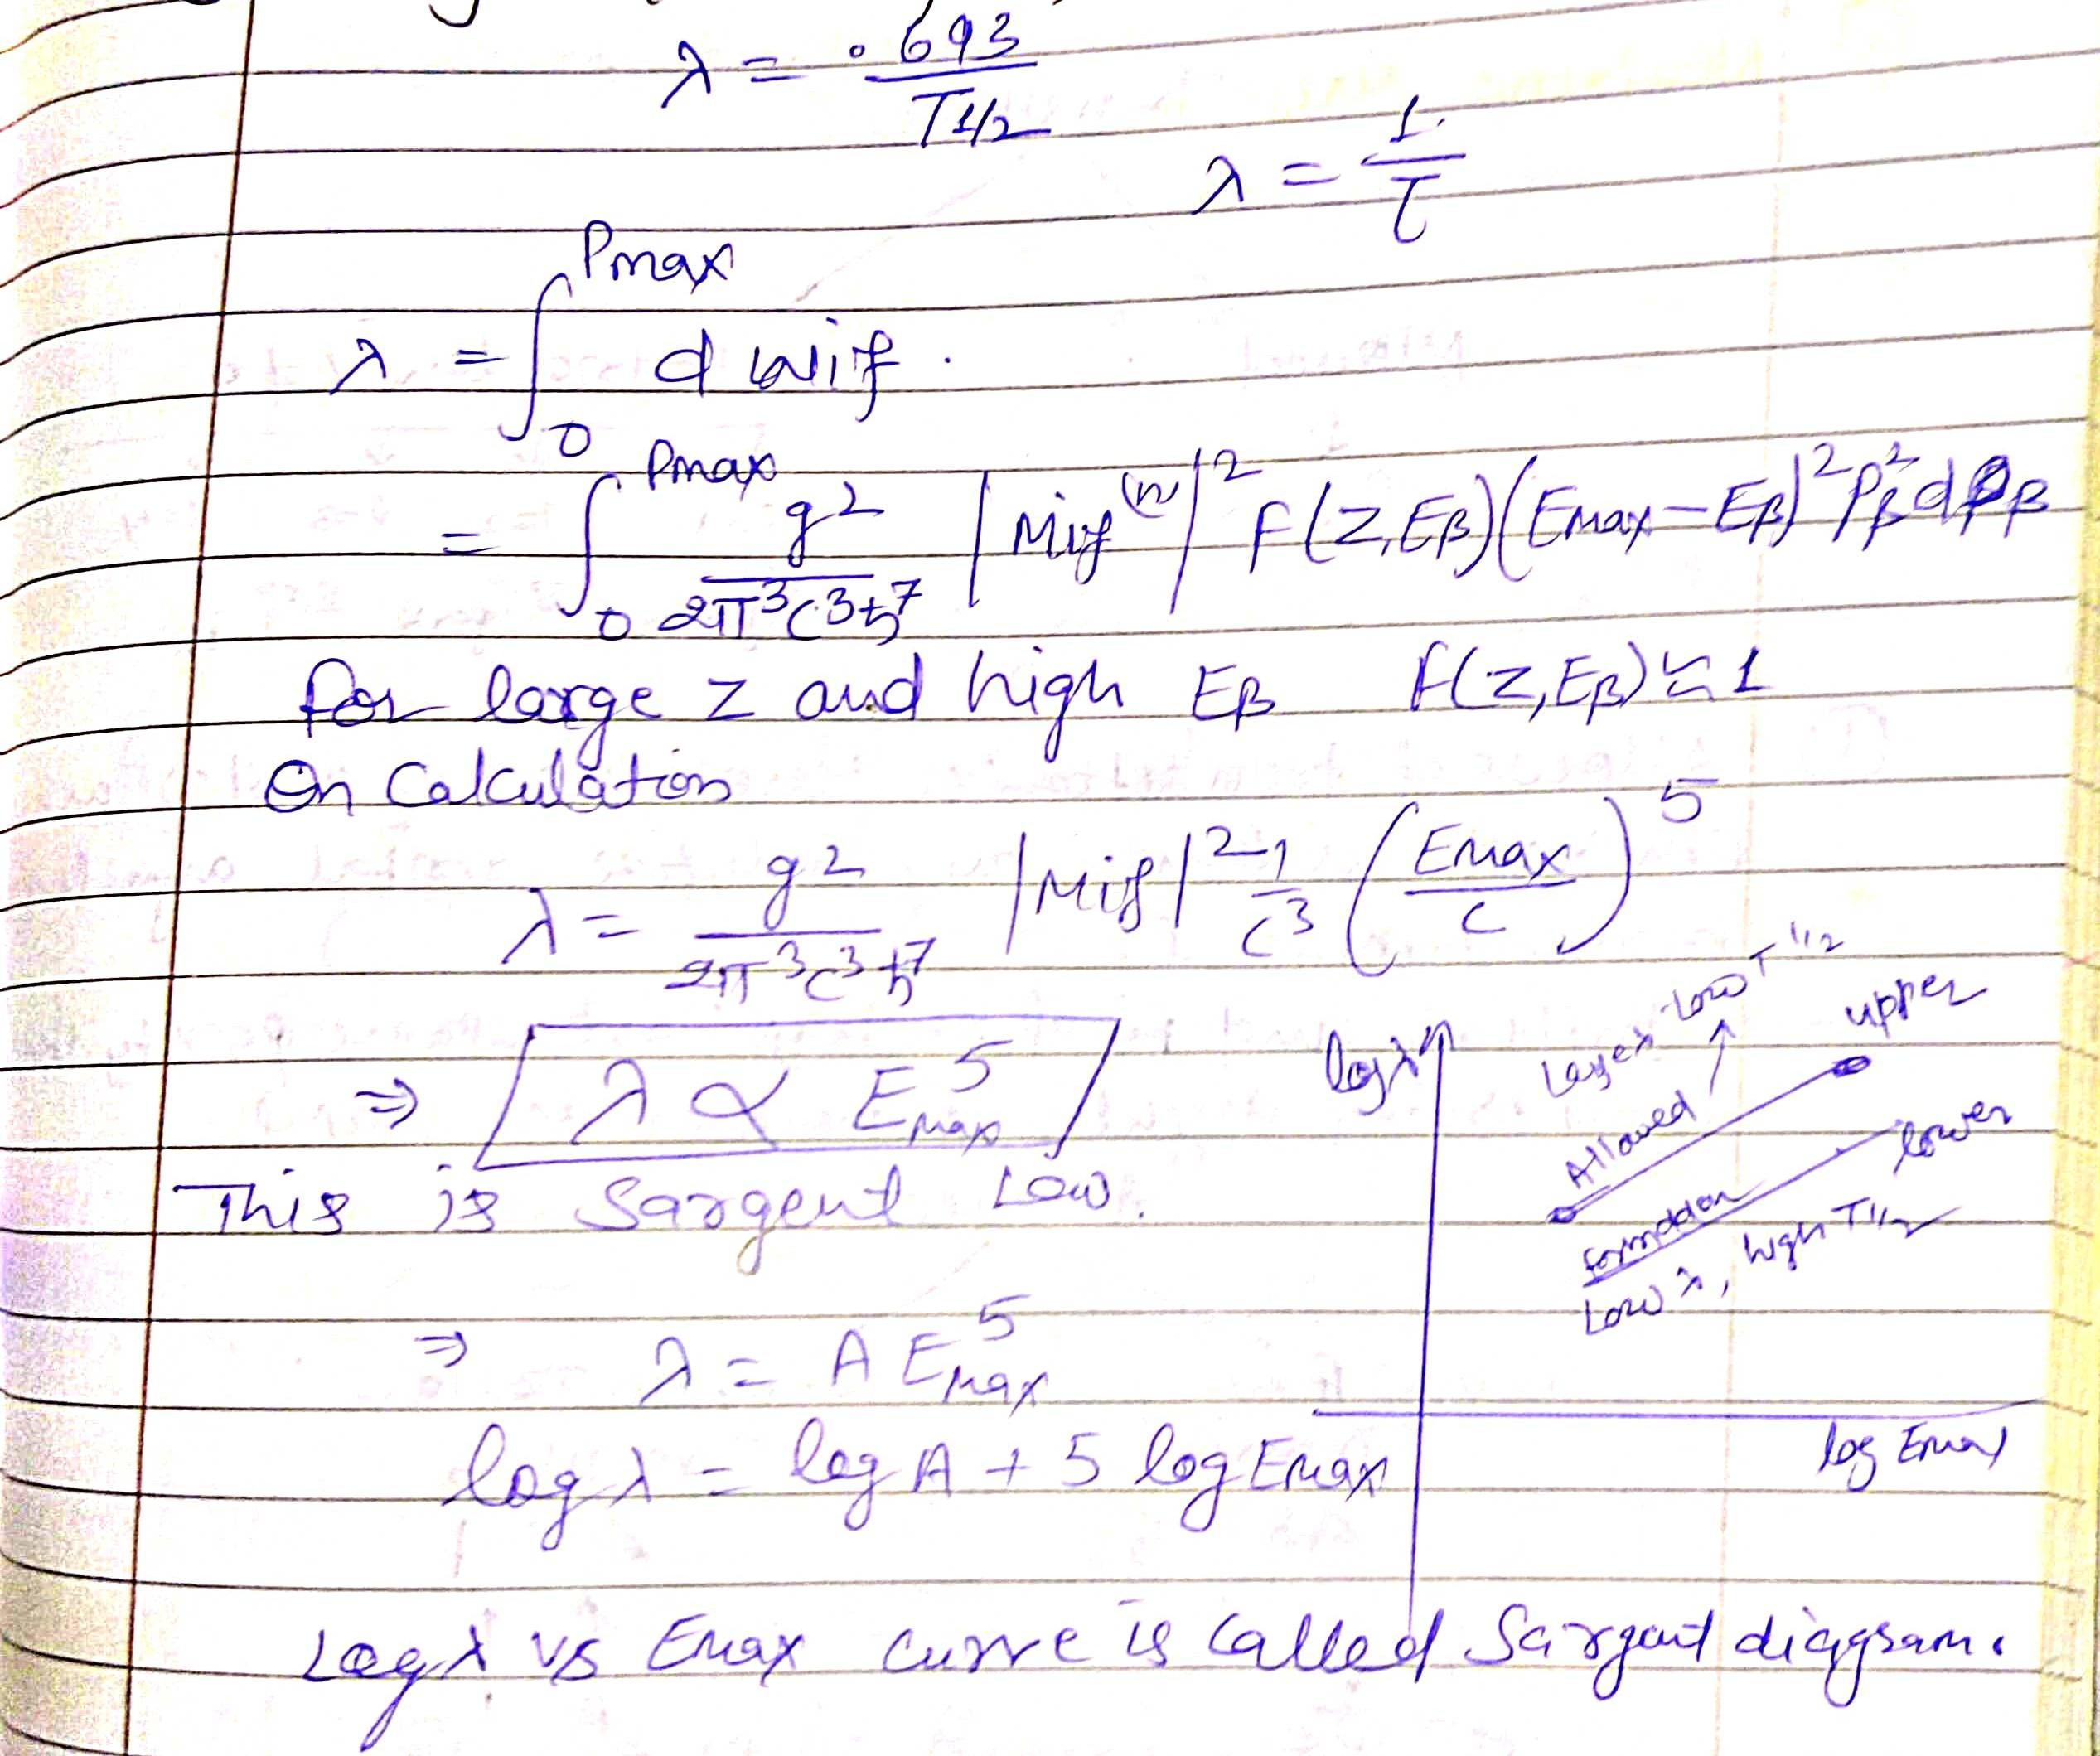 λ = .693 / T1/2
λ = 1/τ
λ = ∫₀^Pmax d wif .
= ∫₀^Pmax g² / 2π³c³ħ⁷ |Mif^(n)|² F(Z,Eβ)(Emax-Eβ)² Pβ² dPβ
for large Z and high Eβ F(Z,Eβ) ≃ 1
On Calculation
λ = g² / 2π³c³ħ⁷ |Mif|² 1/c³ (Emax/c)⁵
⇒ λ ∝ E⁵max
This is Sargent Law.
⇒ λ = A E⁵max
log λ = log A + 5 log Emax
log λ
λ low T 1/2
↑
upper
Allowed
lower
Low λ, high T1/2
log Emax
Log λ vs Emax curve is called Sargent diagram.